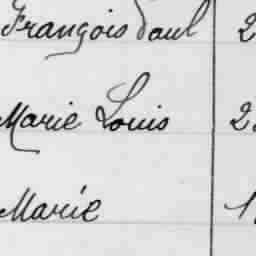 François Paul 2
Marie Louis 2
Marie 1